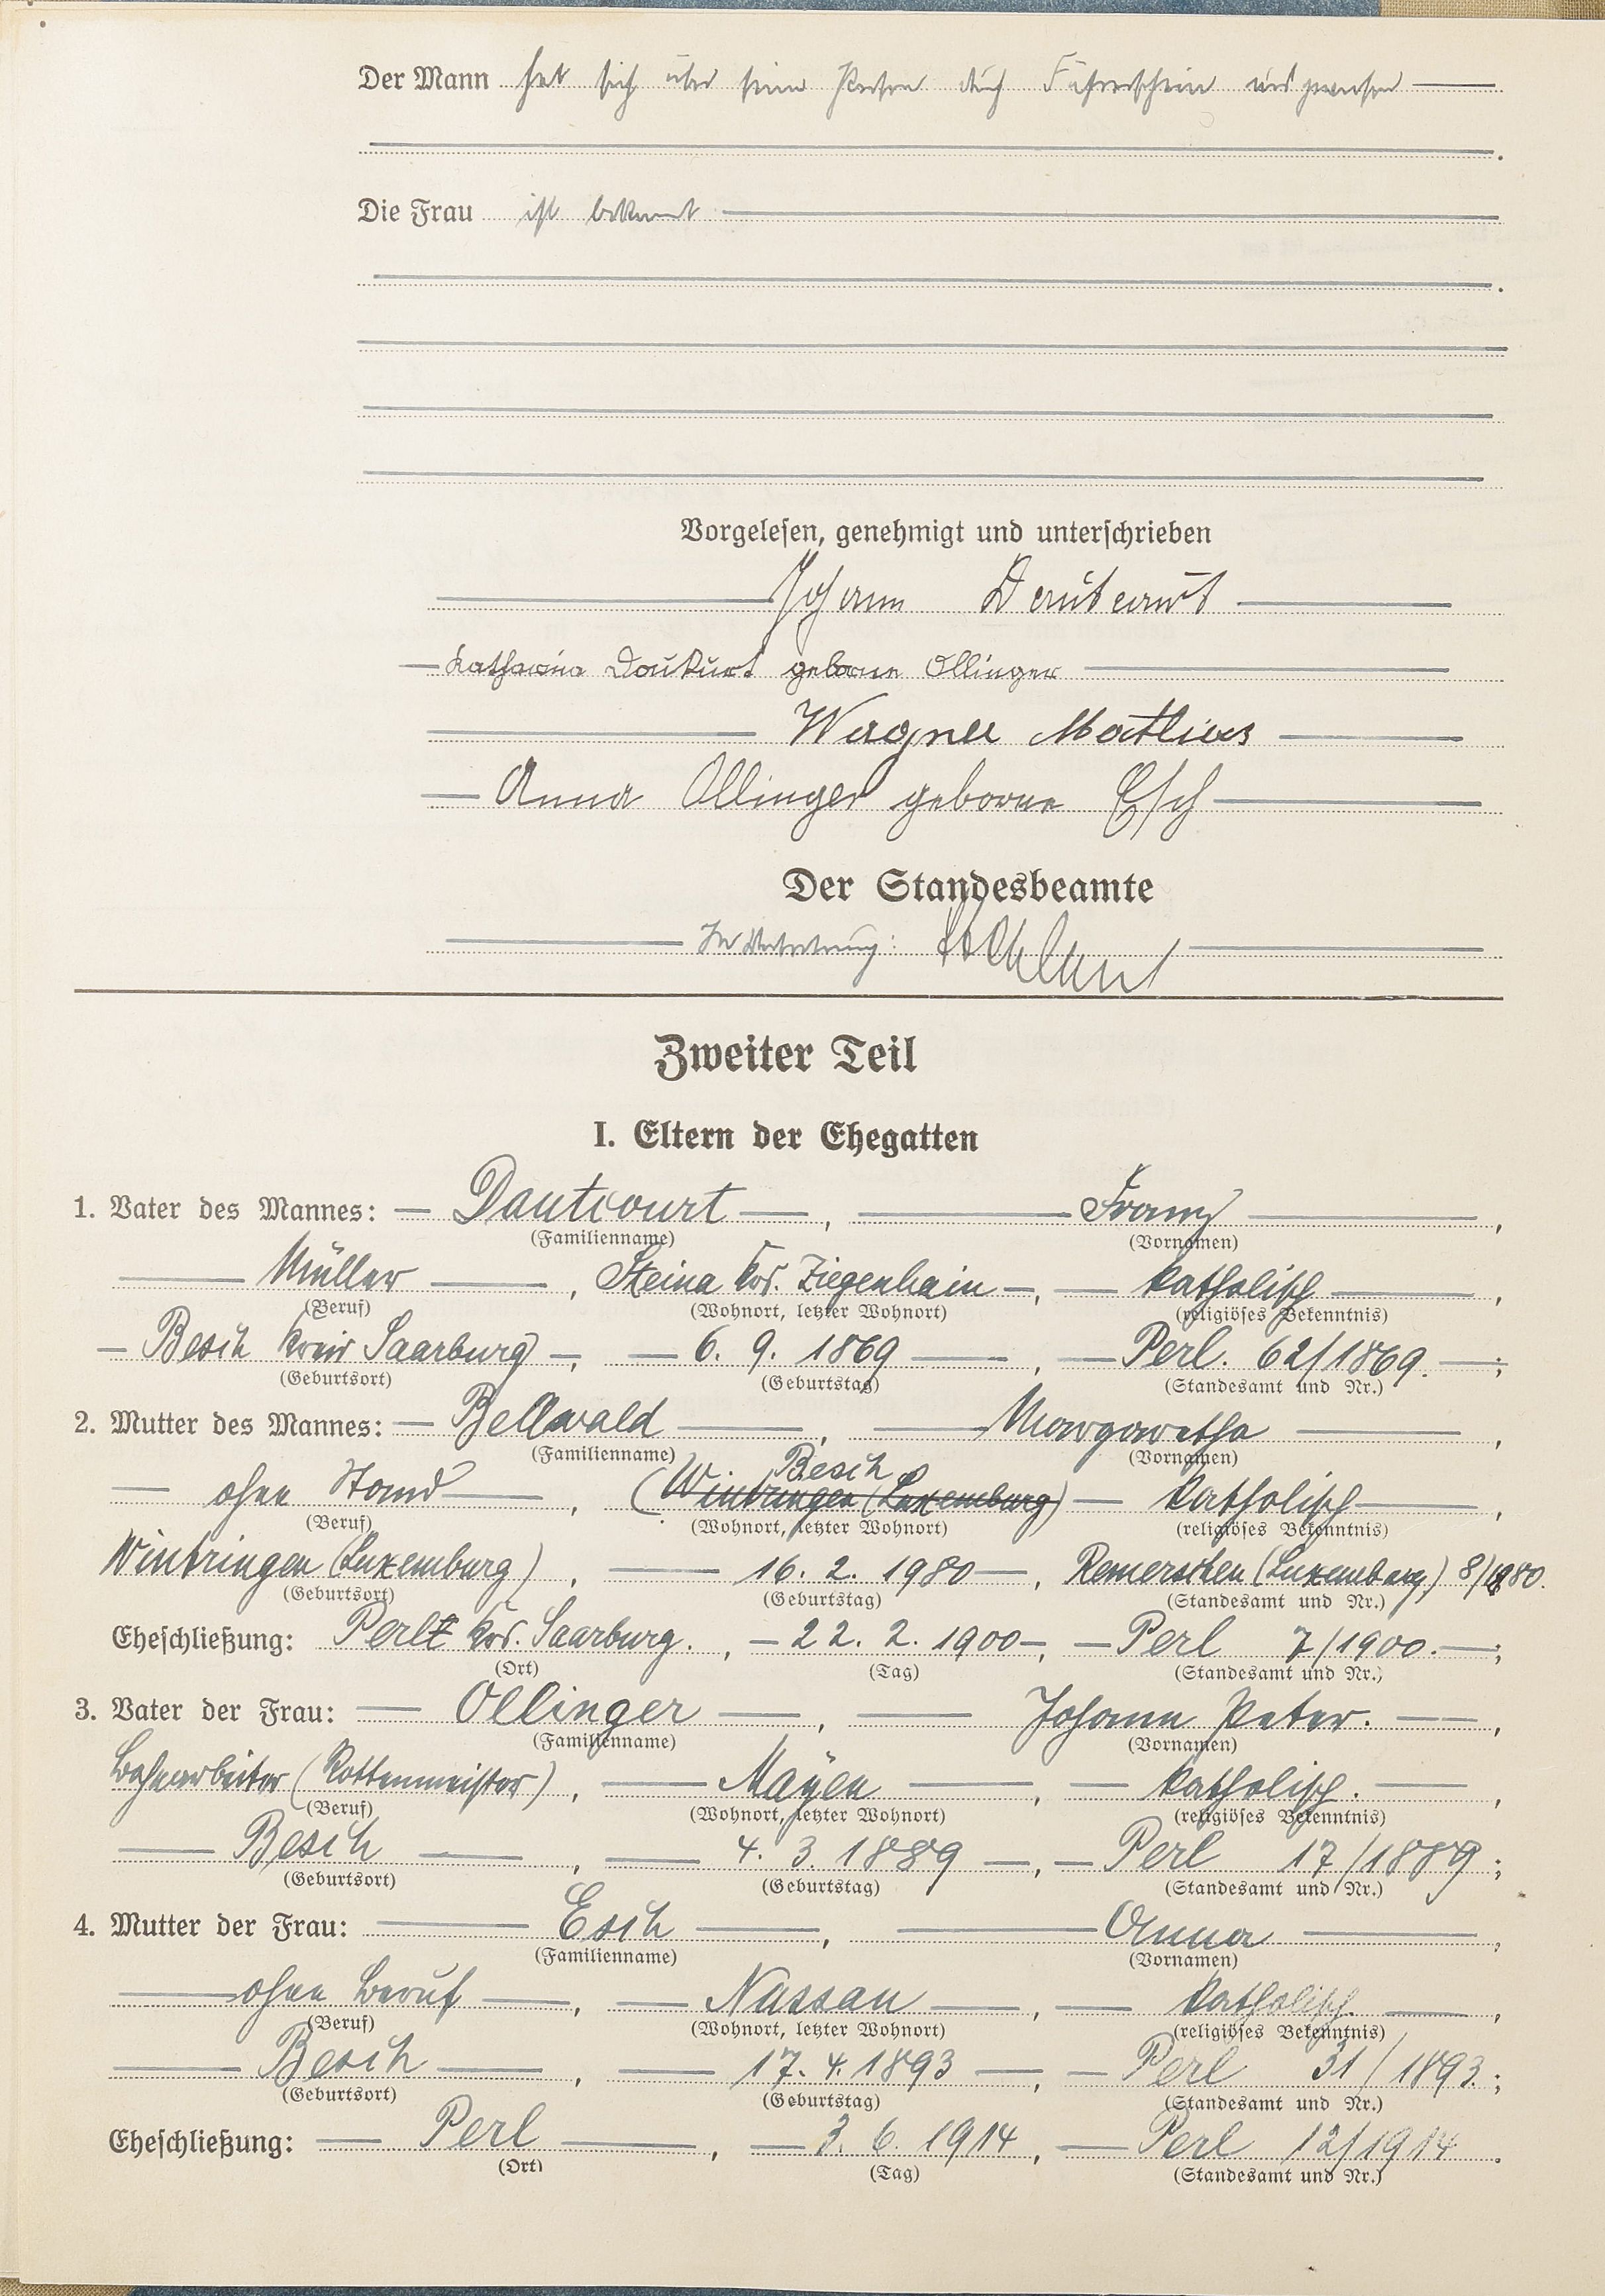 Der Mann hat sich über seine Person durch Führerschein ausgewiesen
Die Frau ist bekannt
Vorgelesen, genehmigt und unterschrieben
Johann Dautcourt
Katharina Dautcourt geborne Ollinger
Wagner Mathias
Anna Ollinger geborne Esch
Der Standesbeamte
In Vertretung:
Zweiter Teil
I. Eltern der Ehegatten
1. Vater des Mannes: Dautcourt, Franz,
(Familienname) (Vornamen)
Müller, Steina Krs. Ziegenhain, katholisch,
(Beruf) (Wohnort, letzter Wohnort) (religiöses Bekenntnis)
Besch Kreis Saarburg, 6. 9. 1869, Perl. 62/1869.;
(Geburtsort) (Geburtstag) (Standesamt und Nr.)
2. Mutter des Mannes: Bellwald, Margaretha,
(Familienname) (Vornamen)
Besch
ohne Stand, (Wintringen (Luxemburg) katholisch,
(Beruf) (Wohnort, letzter Wohnort) (religiöses Bekenntnis)
Wintringen (Luxemburg), 16. 2. 1980, Remerschen (Luxemburg) 8/1880.
(Geburtsort) (Geburtstag) (Standesamt und Nr.)
Eheschließung: Perl Krs. Saarburg., 22. 2. 1900, Perl 7/1900.;
(Ort) (Tag) (Standesamt und Nr.)
3. Vater der Frau: Ollinger, Johann Peter.,
(Familienname) (Vornamen)
Bahnarbeiter (Rottenmeister), Mayen, katholisch.,
(Beruf) (Wohnort, letzter Wohnort) (religiöses Bekenntnis)
Besch, 4. 3. 1889, Perl 17/1889;
(Geburtsort) (Geburtstag) (Standesamt und Nr.)
4. Mutter der Frau: Esch, Anna,
(Familienname) (Vornamen)
ohne Beruf, Nassau, katholisch.,
(Beruf) (Wohnort, letzter Wohnort) (religiöses Bekenntnis)
Besch, 17. 4. 1893, Perl 31/1893.;
(Geburtsort) (Geburtstag) (Standesamt und Nr.)
Eheschließung: Perl, 3. 6. 1914, Perl 12/1914.
(Ort) (Tag) (Standesamt und Nr.)